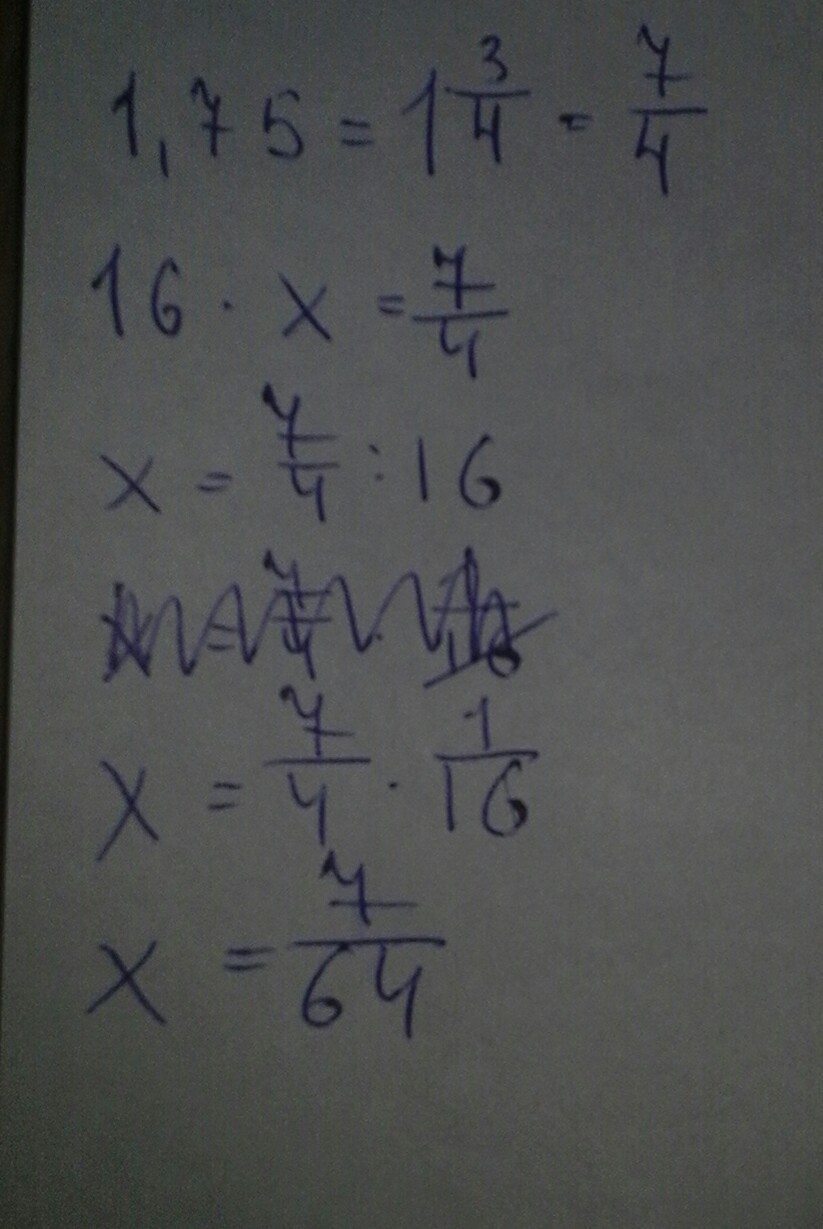 1,75 = 1 3/4 = 7/4
16 · x = 7/4
x = 7/4 : 16
x = 7/4 · 1/16
x = 7/64